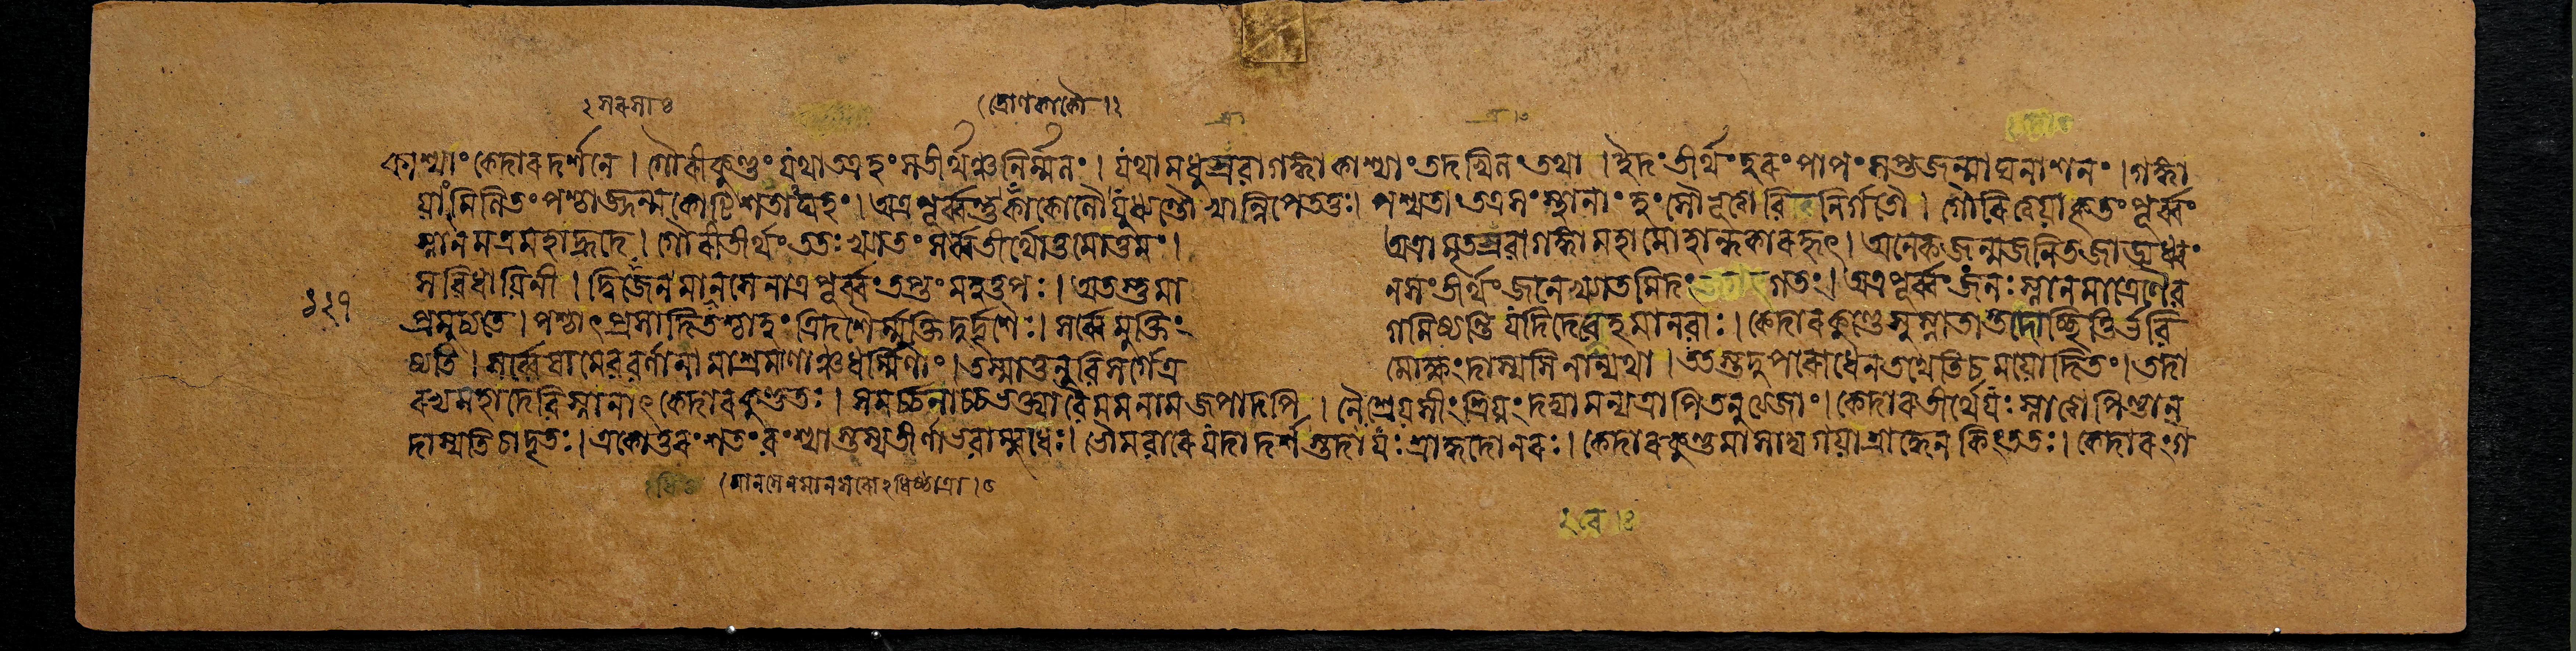 ২ সরসা ৪ (দ্রোণকাকৌ।২
কাশ্যাং কেদারদর্শনে। গৌরীকুণ্ডং যথাতত্রহংসতীর্থঞ্চনির্ম্মলং। যথামধুস্রবাগঙ্গাকাশ্যাংতদখিলংতথা। ইদংতীর্থংহরংপাপংসপ্তজন্মাঘনাশনং। গঙ্গা
য়াংমিলিতংপশ্চাজ্জন্মকোটিশতাঘহং। অত্রপূর্ব্বন্তুকাকোলৌযুধ্যন্তৌখান্নিপেততুঃ। পশ্যতাংতত্রসংস্থানাংহংসৌভূত্বাবিনির্গতৌ। গৌরিত্বয়াকৃতংপূর্ব্বং
স্নানমত্রমহাহ্রদে। গৌরীতীর্থংততঃখ্যাতংসর্ব্বতীর্থোত্তমোত্তমং। অত্রামৃতস্রবাগঙ্গামহামোহান্ধকারহৃৎ। অনেকজন্মজনিতজাড্যধ্বং
সবিধায়িনী। দ্বিজেনমানসেনাত্রপূর্ব্বংতপ্তংমহত্তপঃ। অতস্তুমা নসংতীর্থংজনেখ্যাতমিদং গতং। অত্রপূর্ব্বংজনঃস্নানমাত্রেণৈব
১২৭
প্রমুচ্যতে। পশ্চাৎপ্রসাদিতশ্চাহংত্রিদশৈর্ম্মুক্তিদুর্দৃশৈঃ। সর্ব্বেমুক্তিং গমিষ্যন্তিযদিদেবেহমানবাঃ। কেদারকুণ্ডেসুস্নাতাস্তদোচ্ছিত্তির্ভবি
ষ্যতি। সর্ব্বেষামেববর্ণানামাশ্রমাণাঞ্চধর্ম্মিণাং। তস্মাত্তনুবিসর্গেত্র মোক্ষংদাস্যামিনান্যথা। ততস্তদুপরোধেনতথেতিচময়োদিতং। তদা
রভ্যমহাদেবিস্নানাৎকেদারকুণ্ডতঃ। সমর্চ্চনাচ্চভক্ত্যাবৈমমনামজপাদপি। নৈঃশ্রেয়সীংশ্রিয়ংদদ্যামন্যত্রাপিতনুত্যজাং। কেদারতীর্থেযঃস্নাত্বাপিণ্ডান্
দাস্যতি । একোত্তরংশতংবংশ্যাস্তস্যতীর্ণাভবাম্বুধেঃ। ভৌমবারেযদাদর্শস্তদাযঃশ্রাদ্ধদোনরঃ। কেদারকুণ্ডমাসাদ্যগয়াশ্রাদ্ধেনকিংততঃ। কেদারংগ